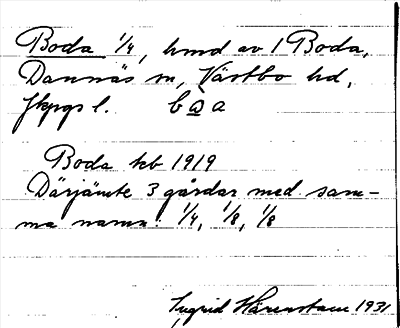 Boda 1/4, hmd av 1 Boda,
Dannäs sn, Västbo hd,
Jkpgs l. bωa
Boda kb 1919
Därjämte 3 gårdar med sam-
ma namn: 1/4, 1/8, 1/8
Ingrid Härenstam 1931